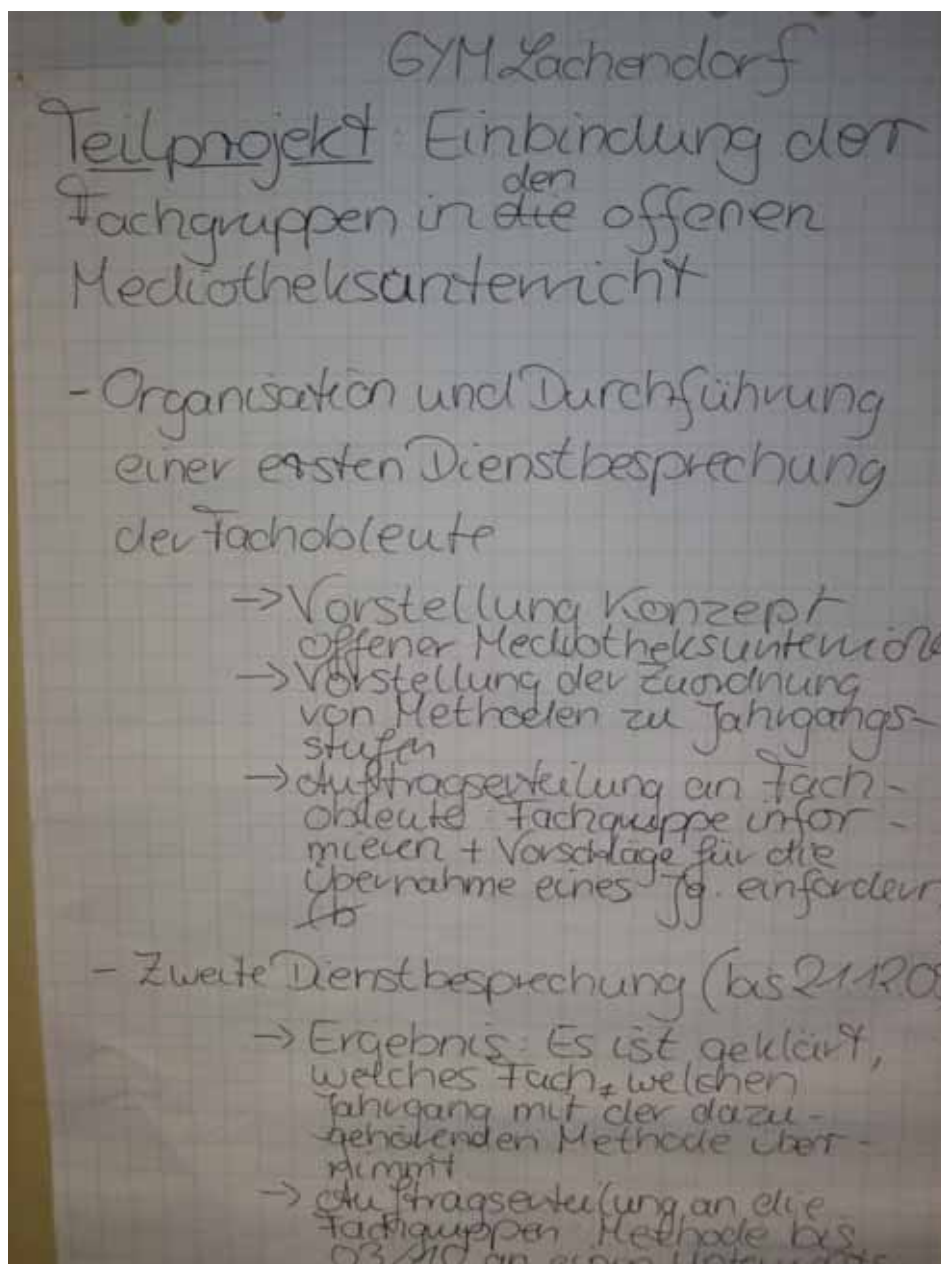 GYM Lachendorf
Teilprojekt: Einbindung der
Fachgruppen in die den offenen
Mediotheksunterricht
- Organisation und Durchführung
einer ersten Dienstbesprechung
der Fachobleute
→ Vorstellung Konzept
offener Mediotheksunterricht
→ Vorstellung der Zuordnung
von Methoden zu Jahrgangs-
stufen
→ Auftragserteilung an Fach-
obleute: Fachgruppe infor-
mieren + Vorschläge für die
Übernahme eines Jg. einfordern
- Zweite Dienstbesprechung (bis 21.12.0
→ Ergebnis: Es ist geklärt,
welches Fach, welchen
Jahrgang mit der dazu-
gehörenden Methode über-
nimmt
→ Auftragserteilung an die
Fachgruppen Methode bis
03/10 an einem